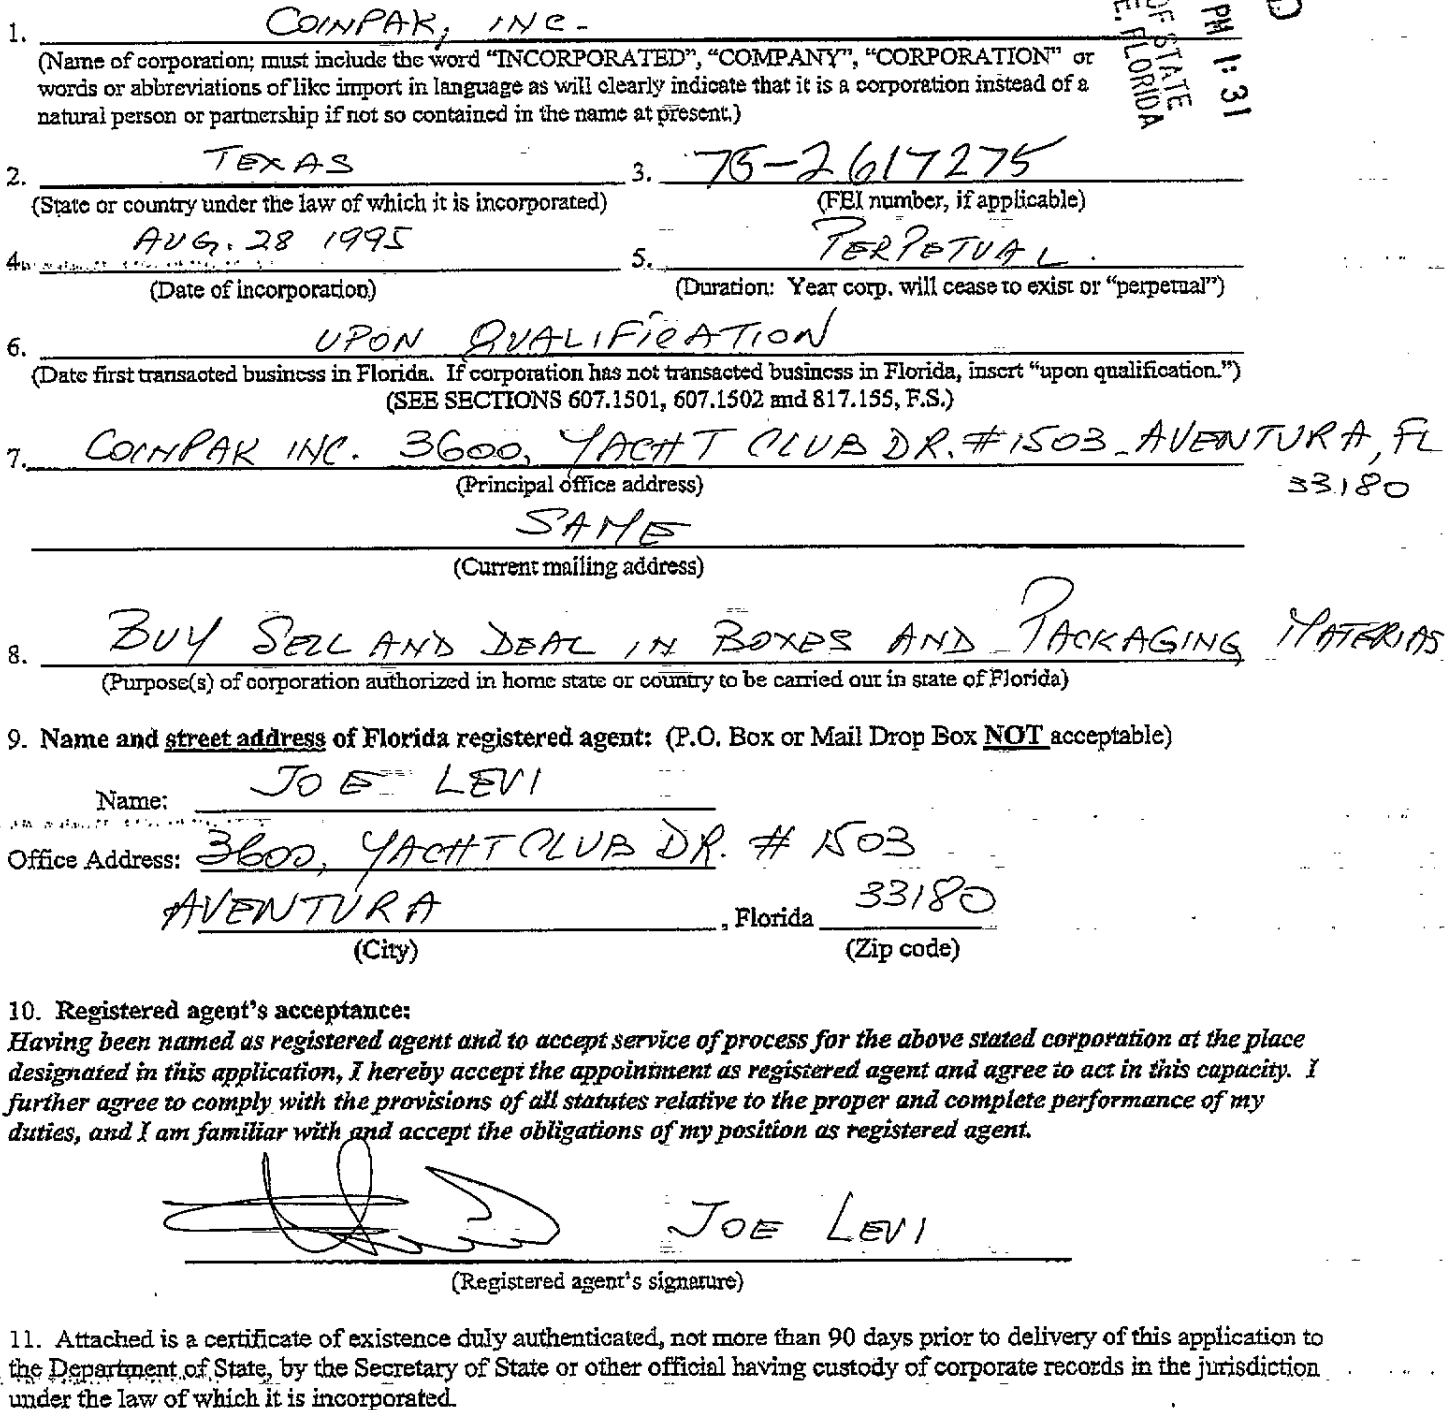 1. COINPAK, INC.
(Name of corporation; must include the word “INCORPORATED”, “COMPANY”, “CORPORATION” or
words or abbreviations of like import in language as will clearly indicate that it is a corporation instead of a
natural person or partnership if not so contained in the name at present.)
PM 1:31
OF STATE
E. FLORIDA
2. TEXAS 3. 75-2617275
(State or country under the law of which it is incorporated) (FEI number, if applicable)
4. AUG. 28 1995 5. PERPETUAL.
(Date of incorporation) (Duration: Year corp. will cease to exist or “perpetual”)
6. UPON QUALIFICATION
(Date first transacted business in Florida. If corporation has not transacted business in Florida, insert “upon qualification.”)
(SEE SECTIONS 607.1501, 607.1502 and 817.155, F.S.)
7. COINPAK INC. 3600, YACHT CLUB DR. #1503 - AVENTURA, FL
(Principal office address) 33180
SAME
(Current mailing address)
8. BUY SELL AND DEAL IN BOXES AND PACKAGING MATERIAS
(Purpose(s) of corporation authorized in home state or country to be carried out in state of Florida)
9. Name and street address of Florida registered agent: (P.O. Box or Mail Drop Box NOT acceptable)
Name: JOE LEVI
Office Address: 3600, YACHT CLUB DR. # 1503
AVENTURA , Florida 33180
(City) (Zip code)
10. Registered agent's acceptance:
Having been named as registered agent and to accept service of process for the above stated corporation at the place
designated in this application, I hereby accept the appointment as registered agent and agree to act in this capacity. I
further agree to comply with the provisions of all statutes relative to the proper and complete performance of my
duties, and I am familiar with and accept the obligations of my position as registered agent.
JOE LEVI
(Registered agent's signature)
11. Attached is a certificate of existence duly authenticated, not more than 90 days prior to delivery of this application to
the Department of State, by the Secretary of State or other official having custody of corporate records in the jurisdiction
under the law of which it is incorporated.